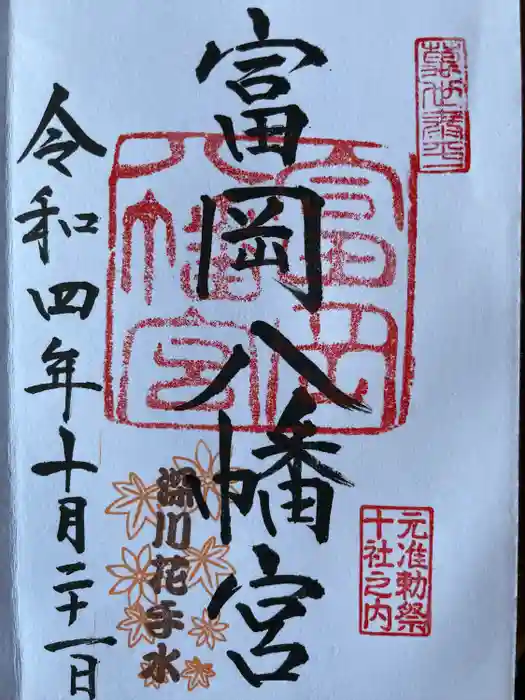 萬世泰平
富岡八幡宮
富岡八幡宮
元准勅祭
十社之内
深川花手水
令和四年十月二十一日